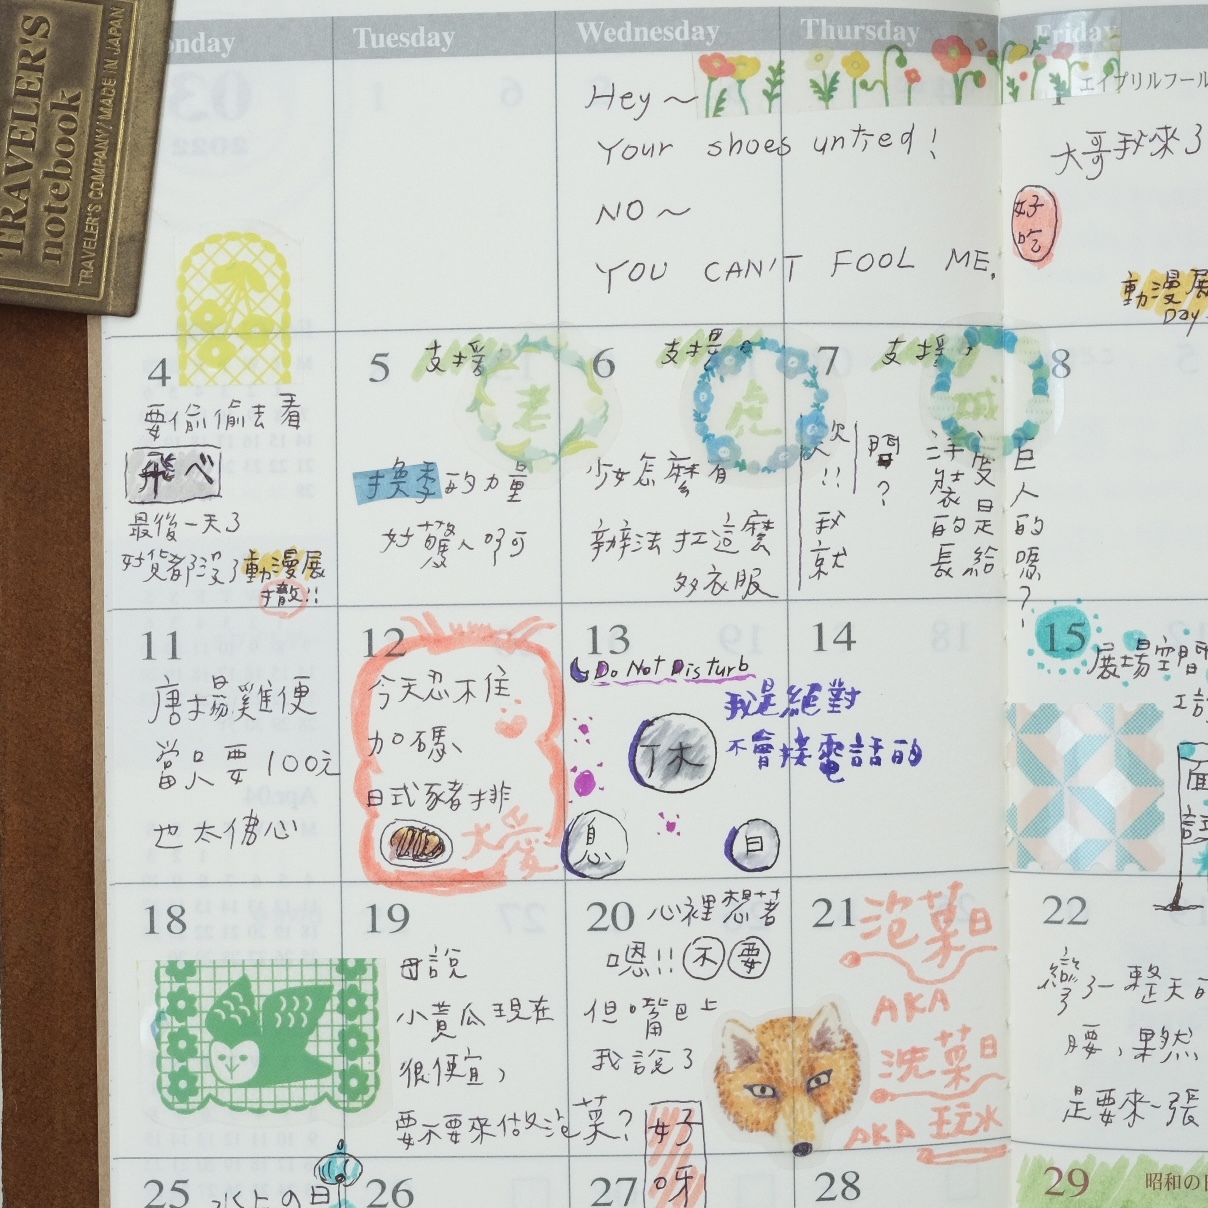 TRAVELER'S
notebook
TRAVELER'S COMPANY/ MADE IN JAPAN
Tuesday
Wednesday
Thursday
Friday
03
2022
Hey~
Your shoes untied!
NO~
YOU CAN'T FOOL ME.
エイプリルフール
大哥我來了
好吃
動漫展
Day
4
要偷偷去看
最後一天了
好貨都沒了
動漫展
撤!!
5
支援
老
換季的力量
好驚人啊
6
支援
虎
少女怎麼有
辦法扛這麼
多衣服
7
支援
巨人的嗎?
這是給
洋裝的長
問?
我就
欠!!
8
11
唐揚雞便
當只要100元
也太佛心
12
今天忍不住
加碼、
日式豬排
大愛
13
Do Not Disturb
休
息
日
我是絕對
不會接電話的
14
15
展場空間
18
19
母說
小黃瓜現在
很便宜,
要不要來做泡菜?
20
心裡想著
嗯!!不要
但嘴巴上
我說了
好呀
21
泡菜日
AKA
洗菜日
AKA 玩水
22
彎了一整天的
腰,果然
是要來一張
25
水上の日
26
27
28
29
昭和の日